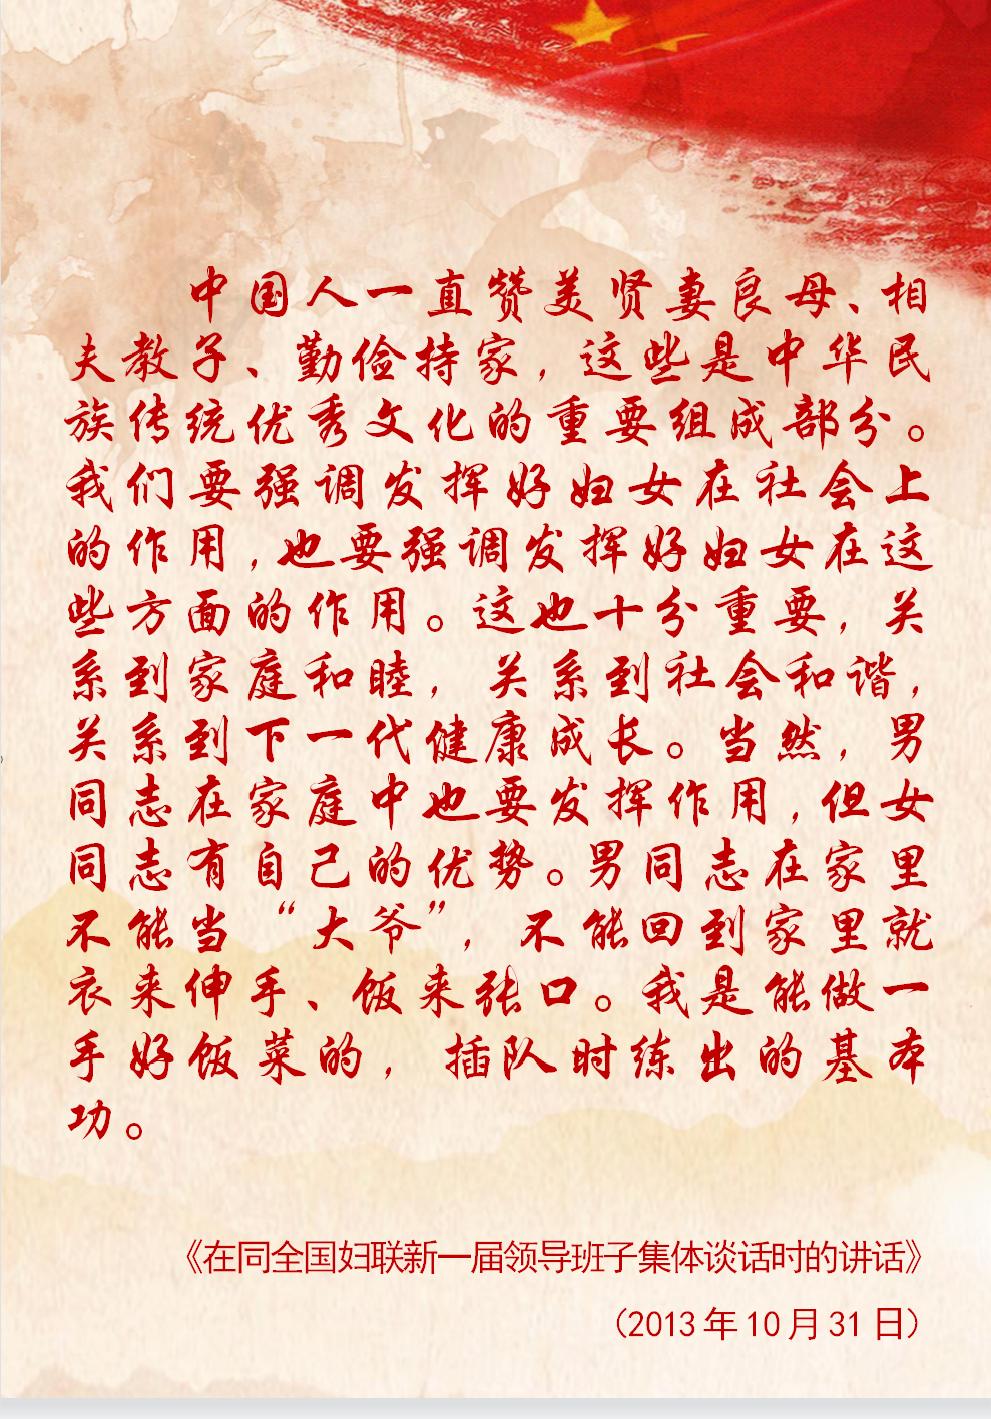 中国人一直赞美贤妻良母、相
夫教子、勤俭持家，这些是中华民
族传统优秀文化的重要组成部分。
我们要强调发挥好妇女在社会上
的作用，也要强调发挥好妇女在这
些方面的作用。这也十分重要，关
系到家庭和睦，关系到社会和谐，
关系到下一代健康成长。当然，男
同志在家庭中也要发挥作用，但女
同志有自己的优势。男同志在家里
不能当“大爷”，不能回到家里就
衣来伸手、饭来张口。我是能做一
手好饭菜的，插队时练出的基本
功。
《在同全国妇联新一届领导班子集体谈话时的讲话》
（2013年10月31日）